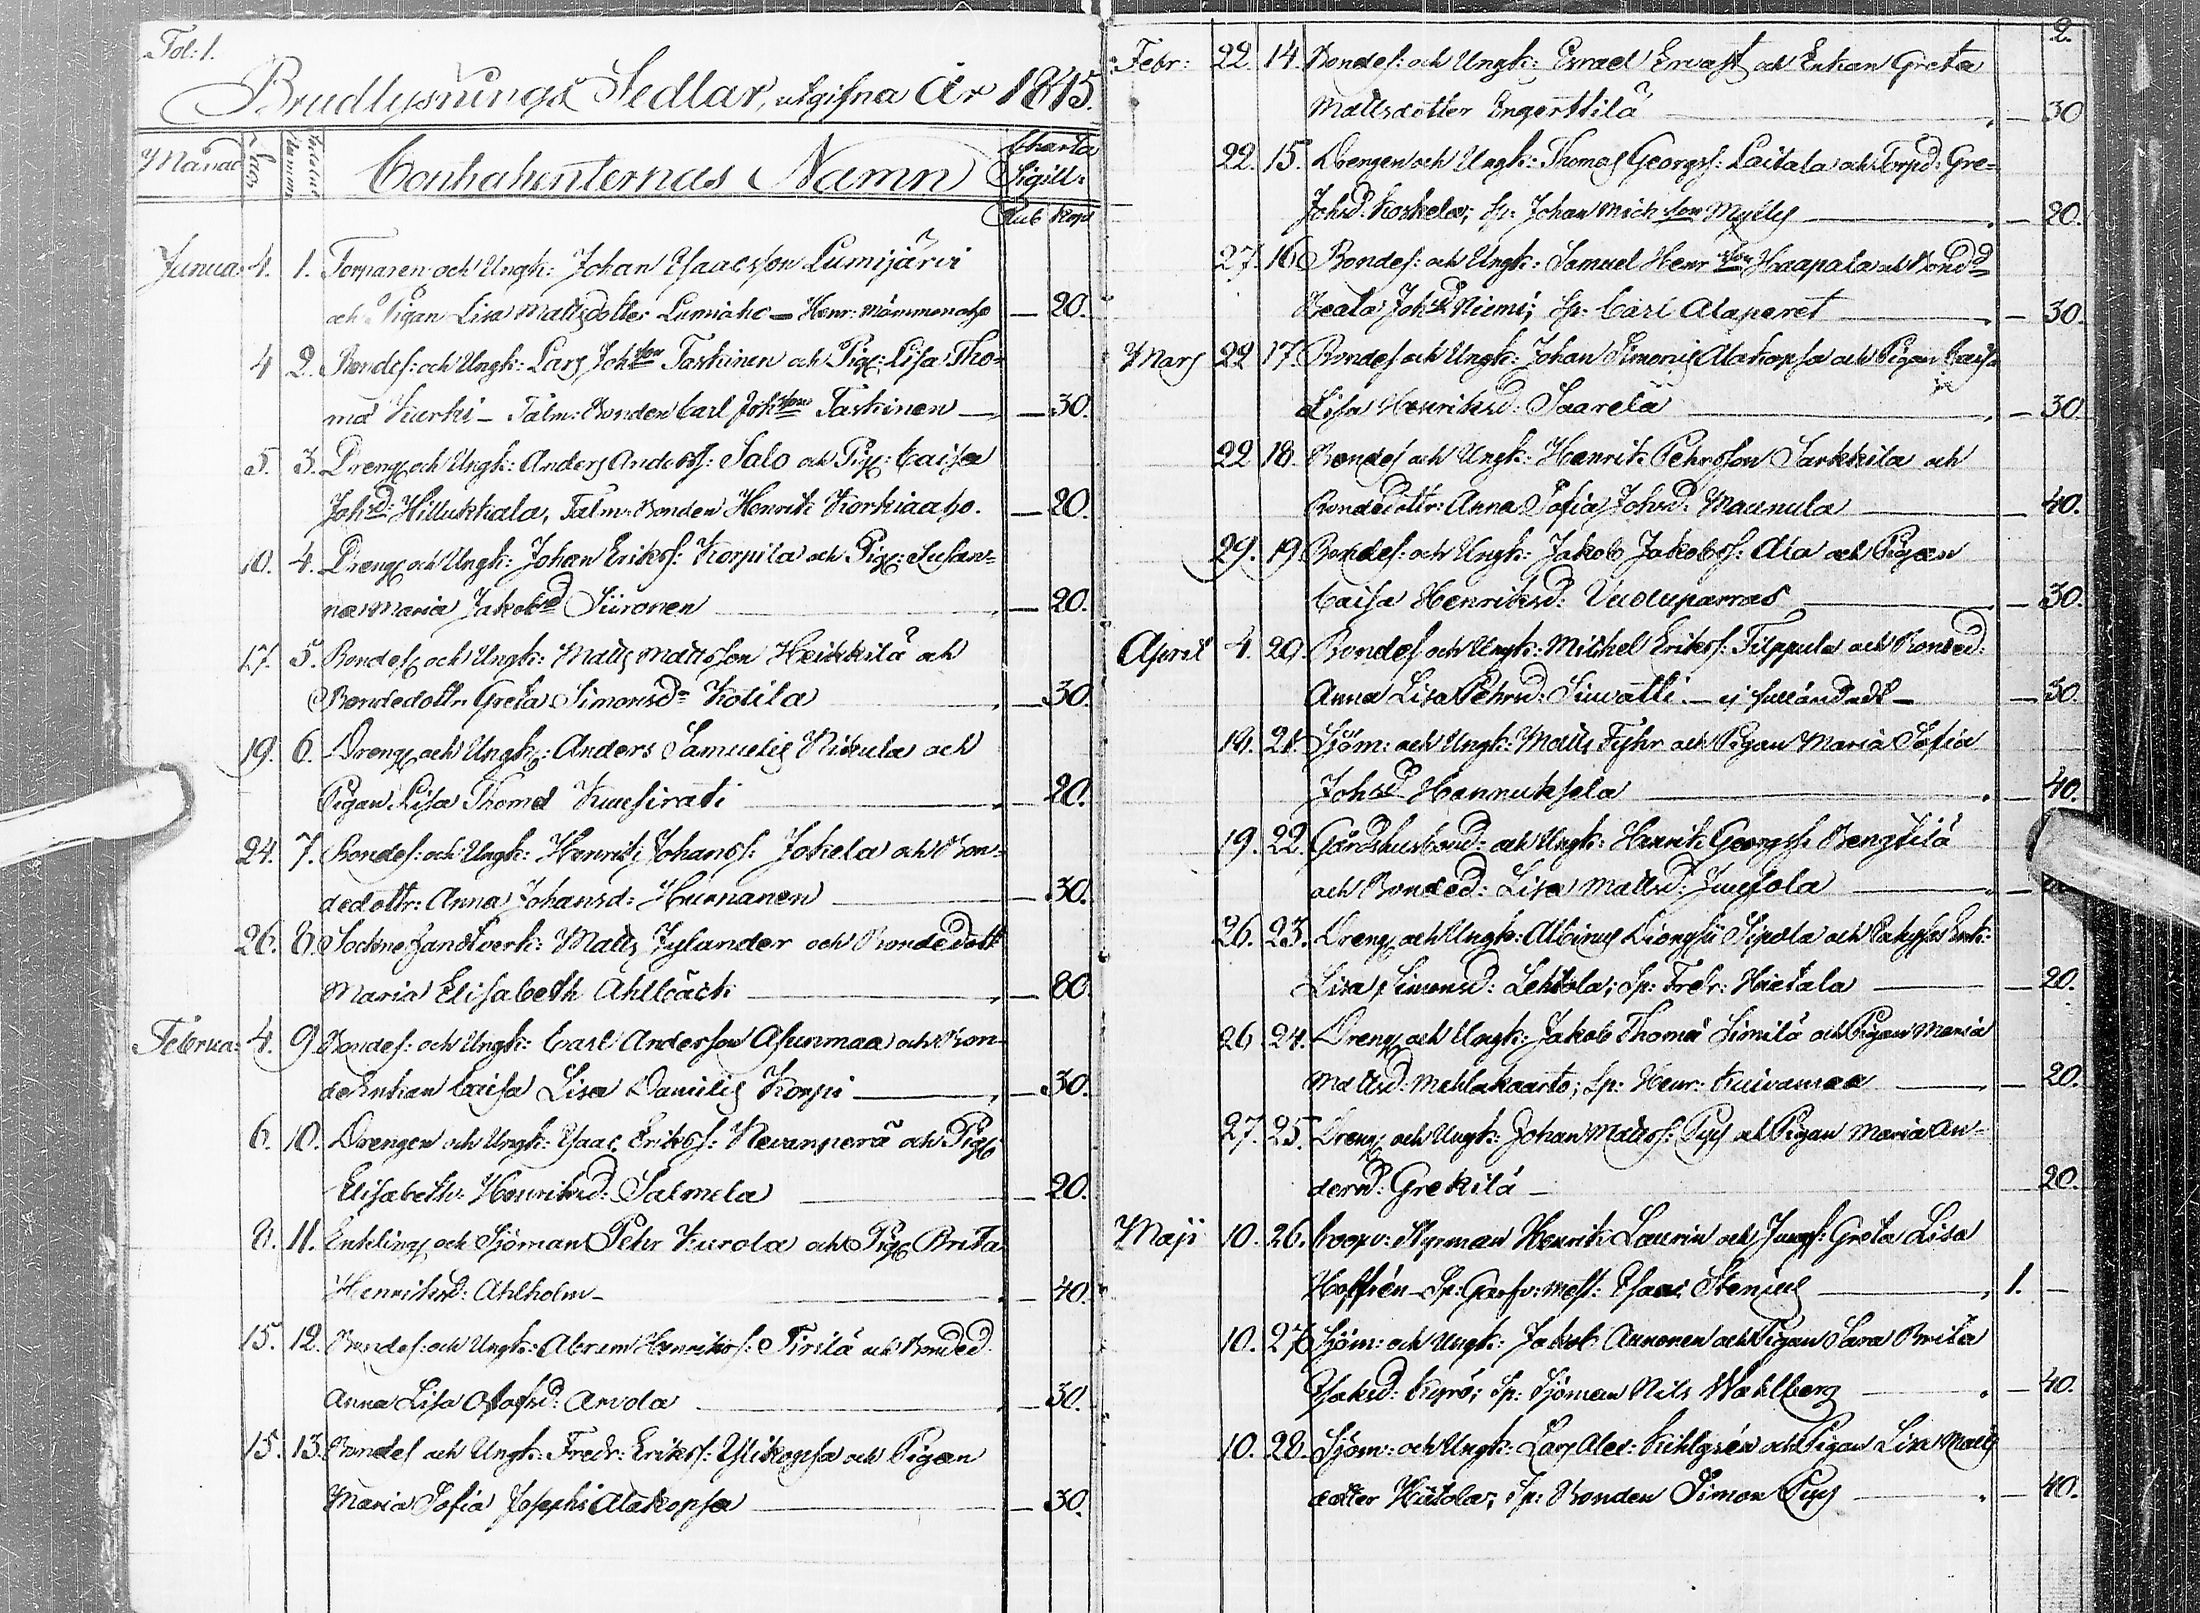 Fol: 1.
Brudlysnings Sedlar, utgifna År 1845.
Månad Dag Numm Contrahenternas Namn Charta Sigill:
Rub Kop
Janua: 4. 1. Torparen och Ungk: Johan Isaacsson Lumijärvi
och Pigan Lisa Mattsdotter Lumiaho — Henr: Mämmenaho — 20.
4 2. Bondes: och Ungk: Lars Johsson Taskinen och Pig: Lisa Tho-
mæ Kurki — Talm: Bonden Carl Johsson Taskinen — 30.
5. 3. Dreng och Ungk: Anders Anderss: Salo och Pig: Caisa
Johsd: Hillukkala, Talm. Bonden Henrik Korkiaaho. — 20.
10. 4. Dreng och Ungk: Johan Erikss: Korpila och Pig: Susan-
na Maria Jakobsd Siironen — 20.
17. 5. Bondes och Ungk: Matts Mattsson Heikkilä och
Bondedottr. Greta Simonsdr Kotila — 30.
19. 6. Dreng och Ungk: Anders Samuelis Nikula och
Pigan Lisa Thomæ Kuusirati — 20.
24. 7. Bondes: och Ungk: Henrik Johanss: Jokela och Bon-
dedottr: Anna Johansd: Hurnanen — 30.
26. 8. Sockne handtverk: Matts Tylander och Bondedott
Maria Elisabeth Ahlbäck — 80.
Februa: 4. 9. Bondes: och Ungk: Carl Andersson Asunmaa och Bon-
de Enkan Caisa Lisa Danielis Korpi — 30.
6. 10. Drengen och Ungk: Isaac Erikss: Nevanperä och Pig
Elisabeth Henriksd: Salmela — 20.
8. 11. Enkling och Sjöman Pehr Kurola och Pig Brita
Henriksd: Ahlholm — 40.
15. 12. Bondes: och Ungk: Abram Henrikss: Tirilä och Bonded.
Anna Lisa Olofsd: Arvola — 30.
15. 13. Bondes och Ungk: Fredr: Erikss: Ylikopsa och Pigan
Maria Sofia Josephi Alakopsa — 30.
2.
Febr: 22. 14. Bondes: och Ungk: Israel Ervast och Enkan Greta
Mattsdotter Ingerttilä — 30
22. 15. Drengen och Ungk: Thomas Georgss: Laitala och Torpd: Gre-
Johsd: Koskela; Sp: Johan Mich son Mylly — 20.
27. 16 Bondes: och Ungk: Samuel Henr son Haapala och Bondd
Beata Johsd Niemi; Sp: Carl Alaperet — 30.
Mars 22 17. Bondes och Ungk: Johan Simonis Alakopsa och Pigan Caisa
Lisa Henriksd: Saarela — 30.
22 18. Bondes och Ungk: Henrik Pehrsson Sarkkila och
Bondedottr: Anna Sofia Johsd: Maunula — 40.
29. 19. Bondes: och Ungk: Jakob Jakobss: Ala och Pigan
Caisa Henriksd: Vuoluparras — 30.
April 4. 20. Bondes och Ungk: Michel Erikss: Filppula och Bonded:
Anna Lisa Pehrsd: Siuvatti. — ej fulländadt — 30.
19. 21. Sjöm: och Ungk: Matts Fyhr och Pigan Maria Sofia
Johsd Hannuksela — 40.
19. 22. Gårdshusbond: och Ungk: Henrik Georgss: Bengtilä
och Bonded: Lisa Mattsd: Juusola —
26. 23. Dreng och Ungk: Albinus Dionysii Sipola och Enk:
Lisa Simonsd: Lehtola; Sp: Fredr: Hietala — 20.
26. 24. Dreng och Ungk: Jakob Thomæ Similä och Pigan Maria
Mattsd: Mehlakaarto; Sp: Henr: Kuivamaa — 20.
27. 25. Dreng och Ungk: Johan Mattss: Pyy och Pigan Maria An-
dersd: Grekilä — 20.
Maji 10. 26. Coopv: Styrman Henrik Laurin och Jungf: Greta Lisa
Hoffrén — Sp: Garfv: Mest: Isaac Stenius — 1. —
10. 27. Sjöm: och Ungk: Jakob Annonen och Pigan Sara Brita
Isaksd: Kyrö; Sp: Sjöman Nils Wahlberg — 40.
10. 28. Sjöm: och Ungk: Lars Alex: Kihlgrén och Pigan Lisa Matts
dotter Hietola; Sp: Bonden Simon Pyy — 40.